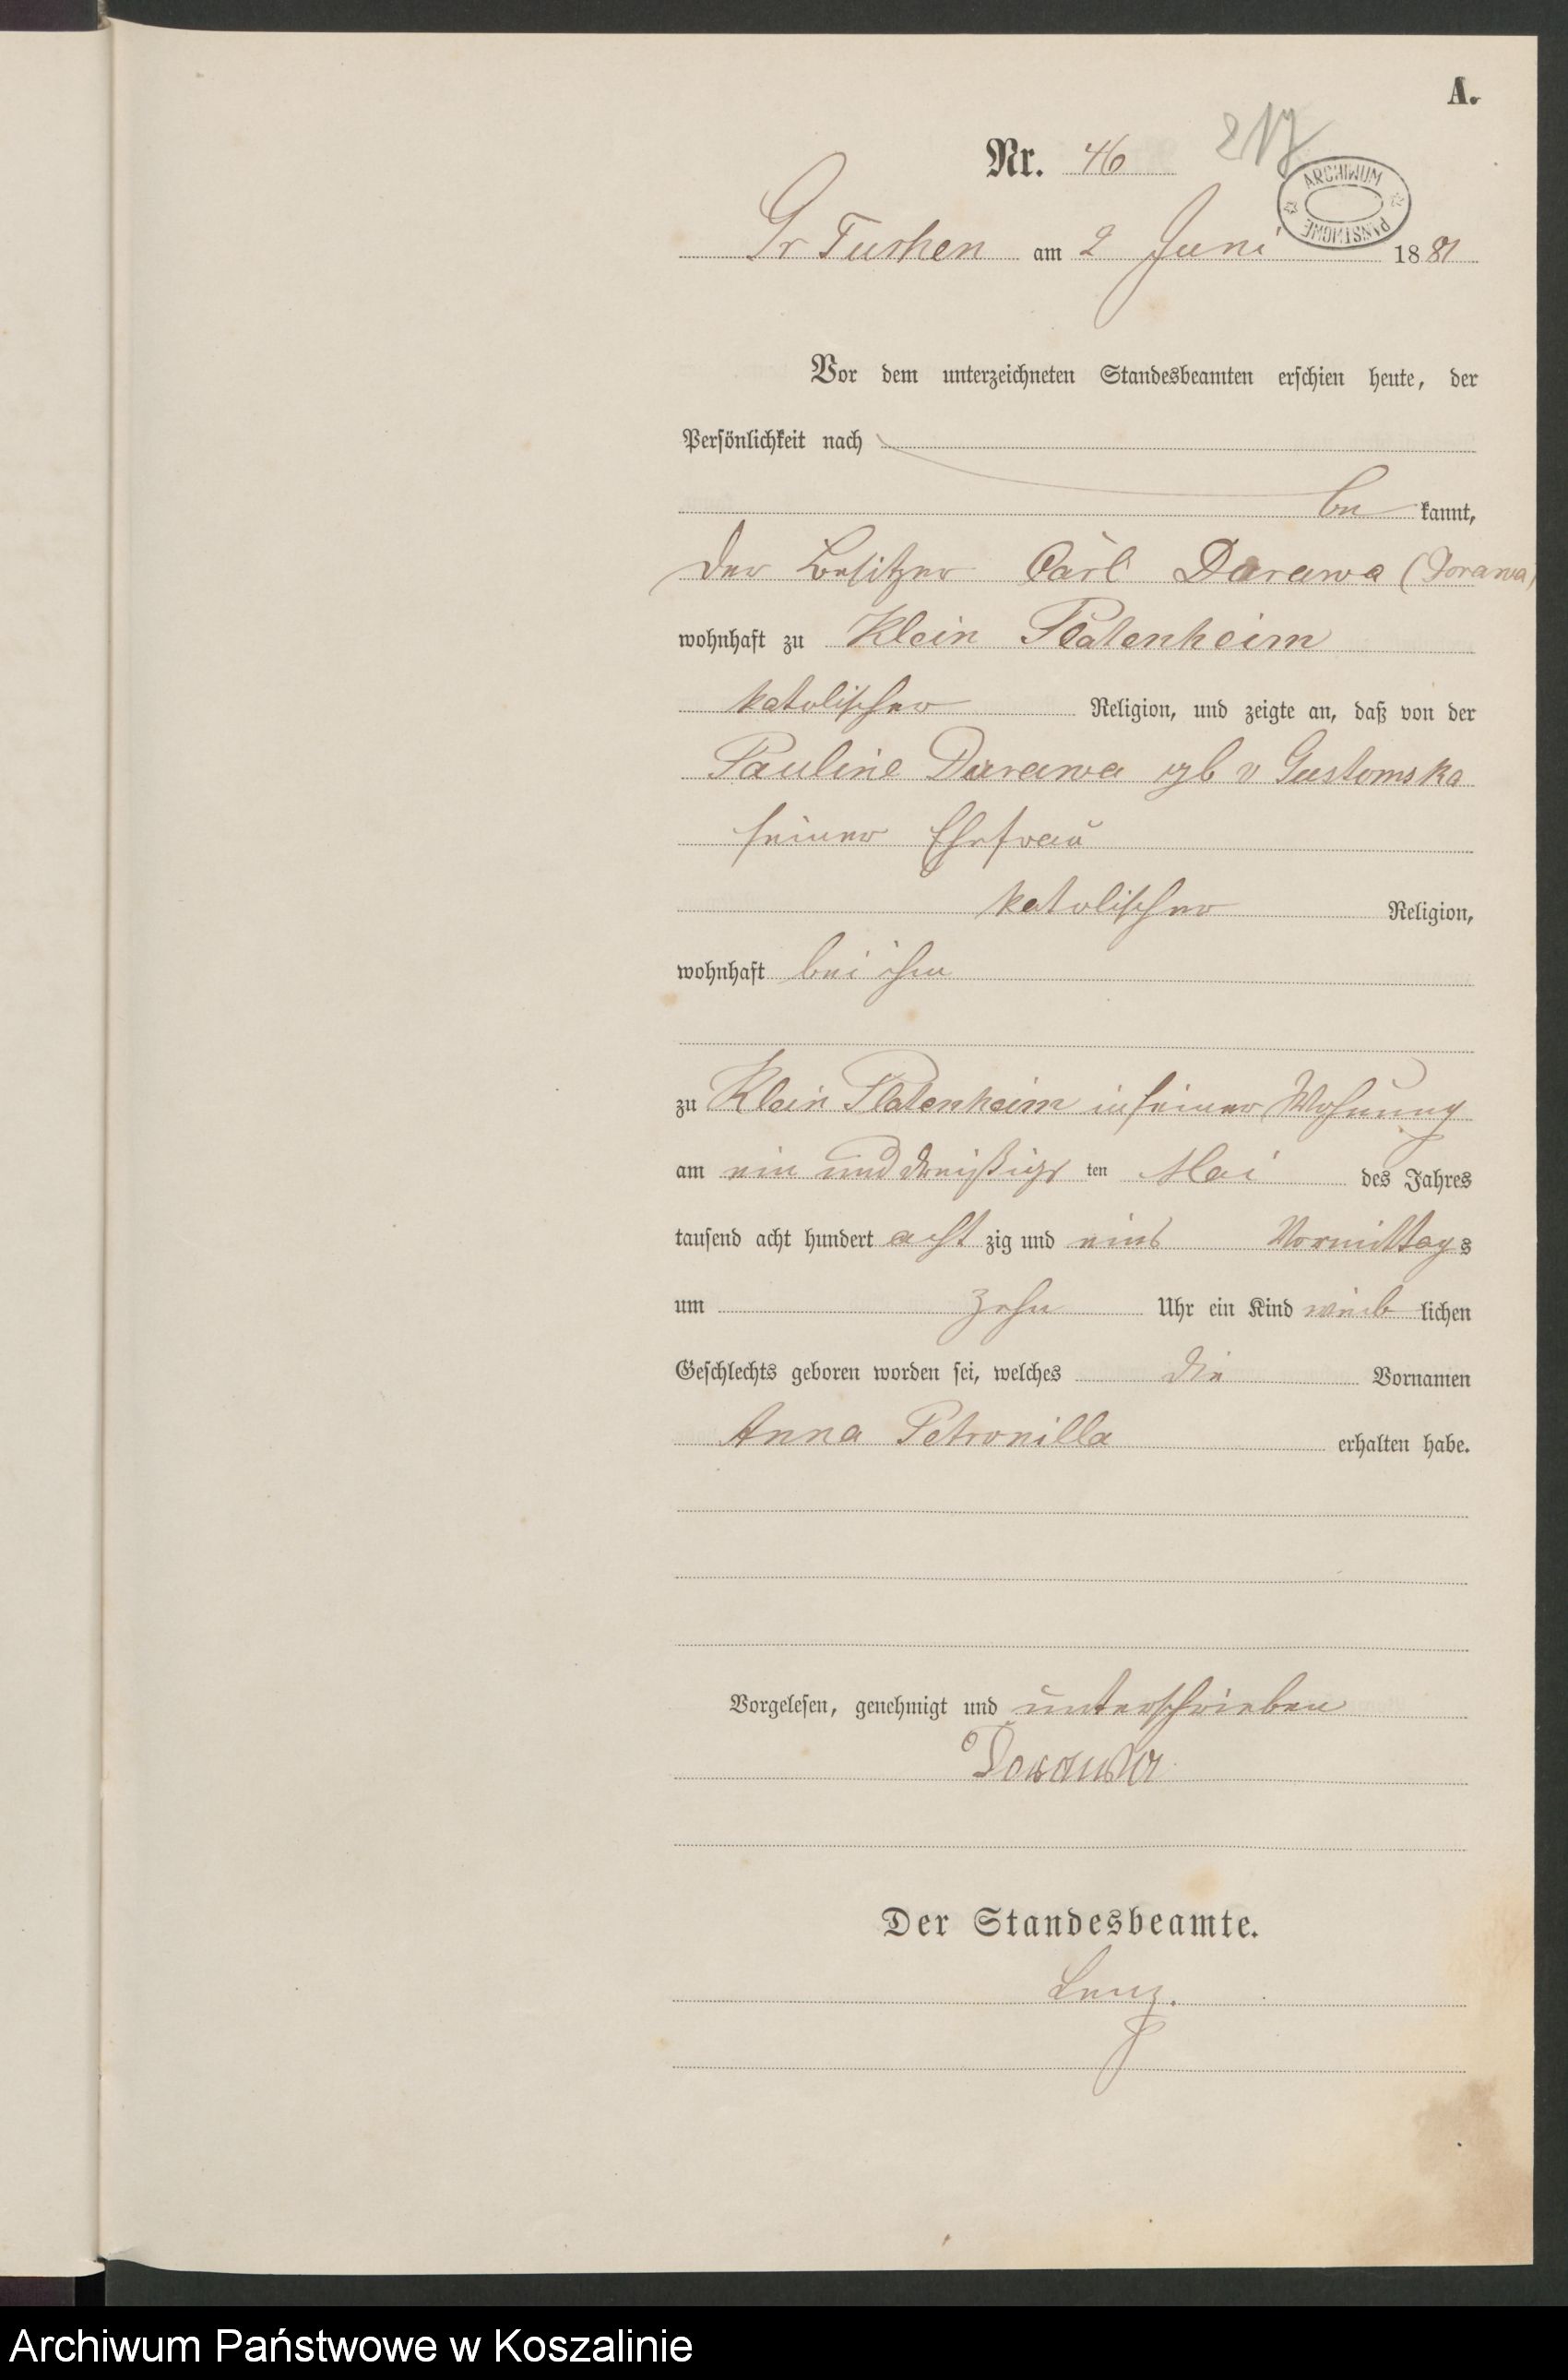 A.
Nr. 46
217
ARCHIWUM PAŃSTWOWE
Gr Tuchen am 2 Juni 1881
Vor dem unterzeichneten Standesbeamten erschien heute, der
Persönlichkeit nach
be kannt,
der Besitzer Carl Darawa (Dorawa)
wohnhaft zu Klein Platenheim
katolischer Religion, und zeigte an, daß von der
Pauline Darawa geb v Gustomska
seiner Ehefrau
katolischer Religion,
wohnhaft bei ihm
zu Klein Platenheim in seiner Wohnung
am ein und dreißigs ten Mai des Jahres
tausend acht hundert acht zig und eins Vormittags
um zehn Uhr ein Kind weib lichen
Geschlechts geboren worden sei, welches die Vornamen
Anna Petronilla erhalten habe.
Vorgelesen, genehmigt und unterschrieben
Der Standesbeamte.
Lenz.
Archiwum Państwowe w Koszalinie